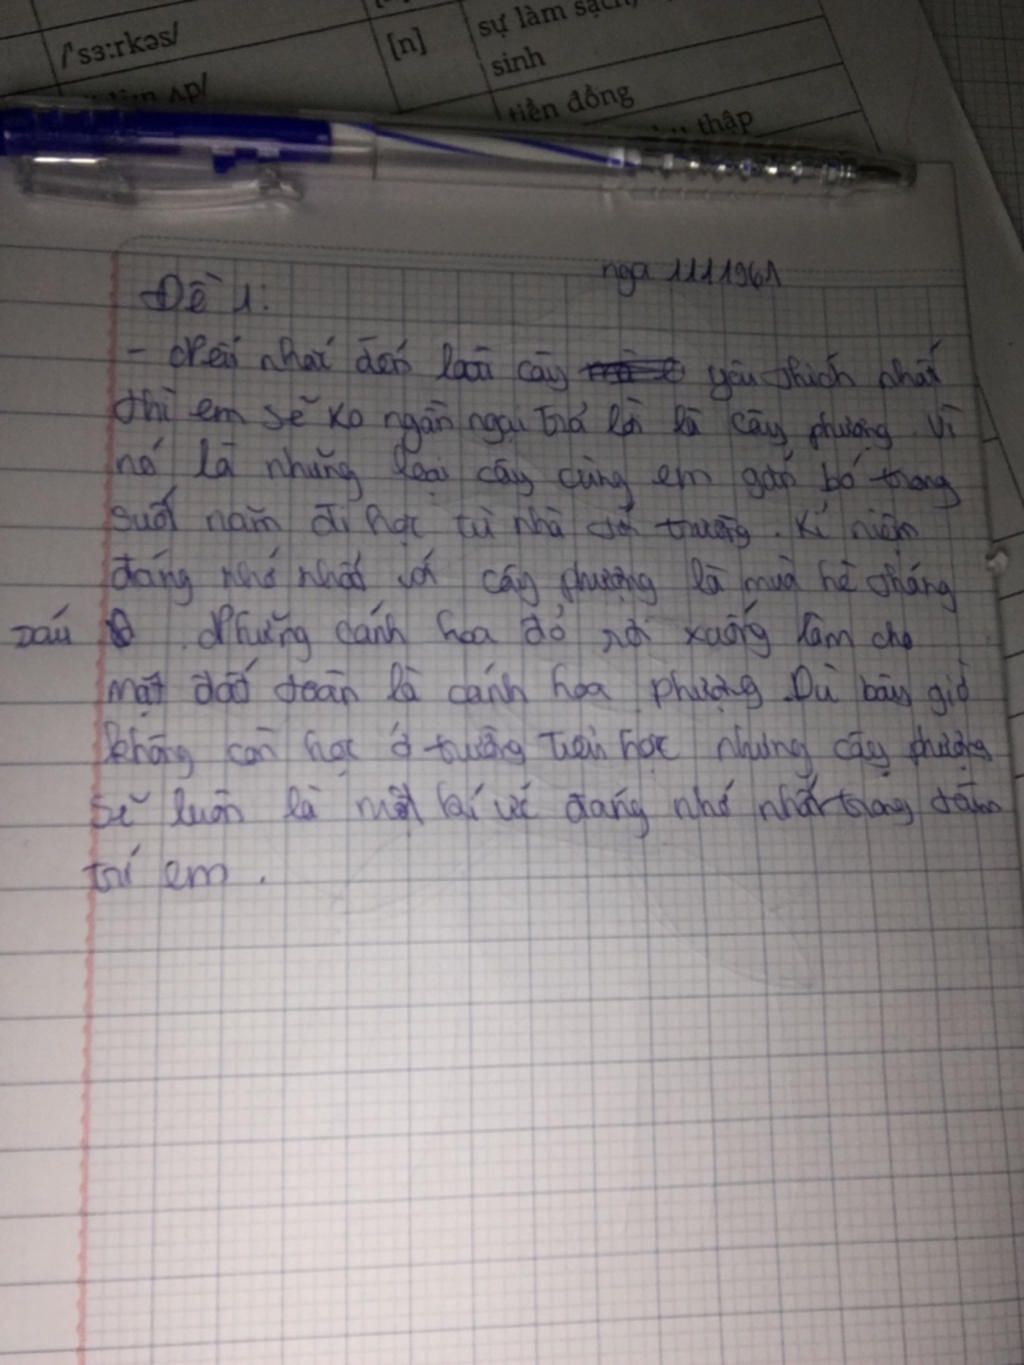 /'sɜːrkəs/
[n]
sự làm sạch,
sinh
ʌp/
tiền đồng
thập
nga 1111961
Đề 1:
- Nếu nhắc đến loài cây yêu thích nhất
thì em sẽ ko ngần ngại trả lời là cây phượng. Vì
nó là những loại cây cùng em gắn bó trong
suốt năm đi học từ nhà tới trường. Kỉ niệm
đáng nhớ nhất với cây phượng là mùa hè tháng
sáu . Những cánh hoa đỏ rơi xuống làm cho
mặt đất toàn là cánh hoa phượng. Dù bây giờ
không còn học ở trường tiểu học nhưng cây phượng
sẽ luôn là một đáng nhớ nhất trong tâm
trí em.